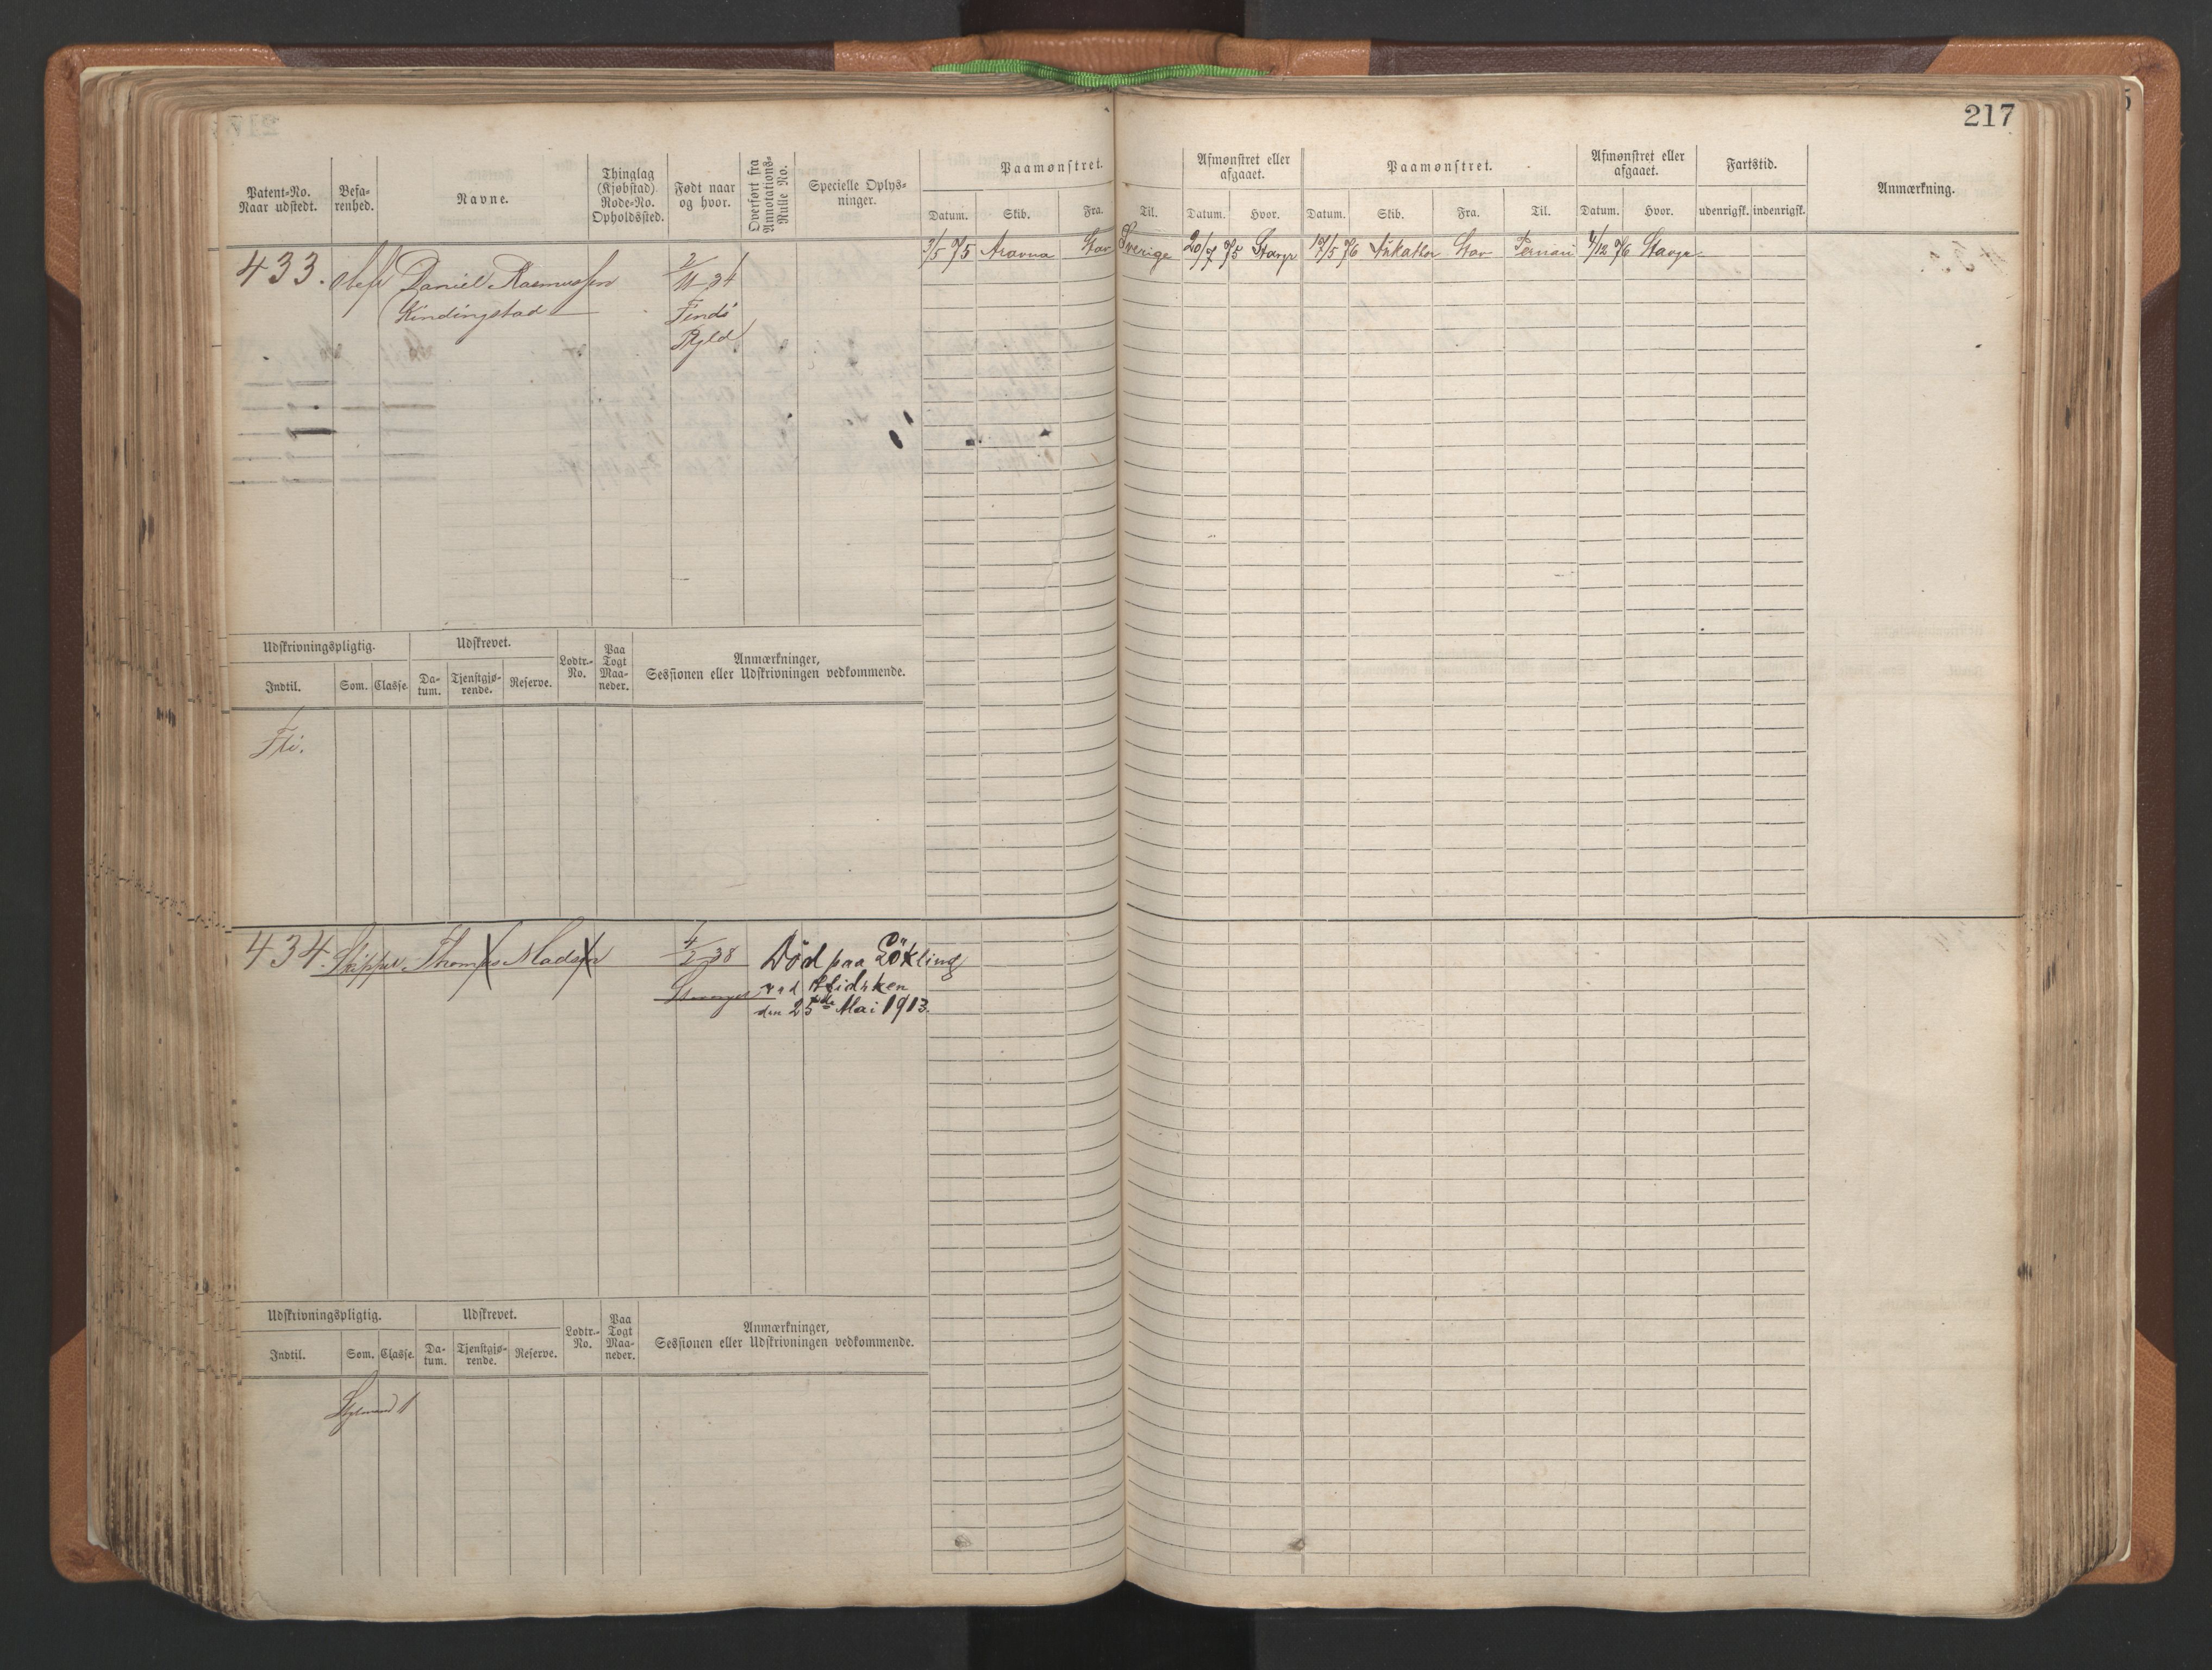 217
Patent-No.
Naar udstedt.
Befa-
renhed.
Navne.
Thinglag
(Kjøbstad).
Rode-No.
Opholdssted.
Født naar
og hvor.
Overført fra
Annotations-
Rulle No.
Specielle Oplys-
ninger.
Paamønstret.
Datum.
Skib.
Fra.
Til.
Afmønstret eller
afgaaet.
Datum.
Hvor.
Paamønstret.
Datum.
Skib.
Fra.
Til.
Afmønstret eller
afgaaet.
Datum.
Hvor.
Fartstid.
udenrigsk.
indenrigsk.
Anmærkning.
433.
Daniel Rasmussen
Kindingstad
2/11 34
3/5 75
Stav
Sverige
20/7 75
Stavgr
17/5 76
Stav
Pernau
4/12 76
Stavgr
Udskrivningspligtig.
Indtil.
Som.
Classe.
Udskrevet.
Da-
tum.
Tjenstgjø-
rende.
Reserve.
Lodtr.-
No.
Paa
Togt
Maa-
neder.
Anmærkninger,
Sessionen eller Udskrivningen vedkommende.
Fri.
434.
Skipper
Thomas Madsen
4/2 38
Stavanger
Død paa
den 25de Mai 1913.
Udskrivningspligtig.
Indtil.
Som.
Classe.
Udskrevet.
Da-
tum.
Tjenstgjø-
rende.
Reserve.
Lodtr.-
No.
Paa
Togt
Maa-
neder.
Anmærkninger,
Sessionen eller Udskrivningen vedkommende.